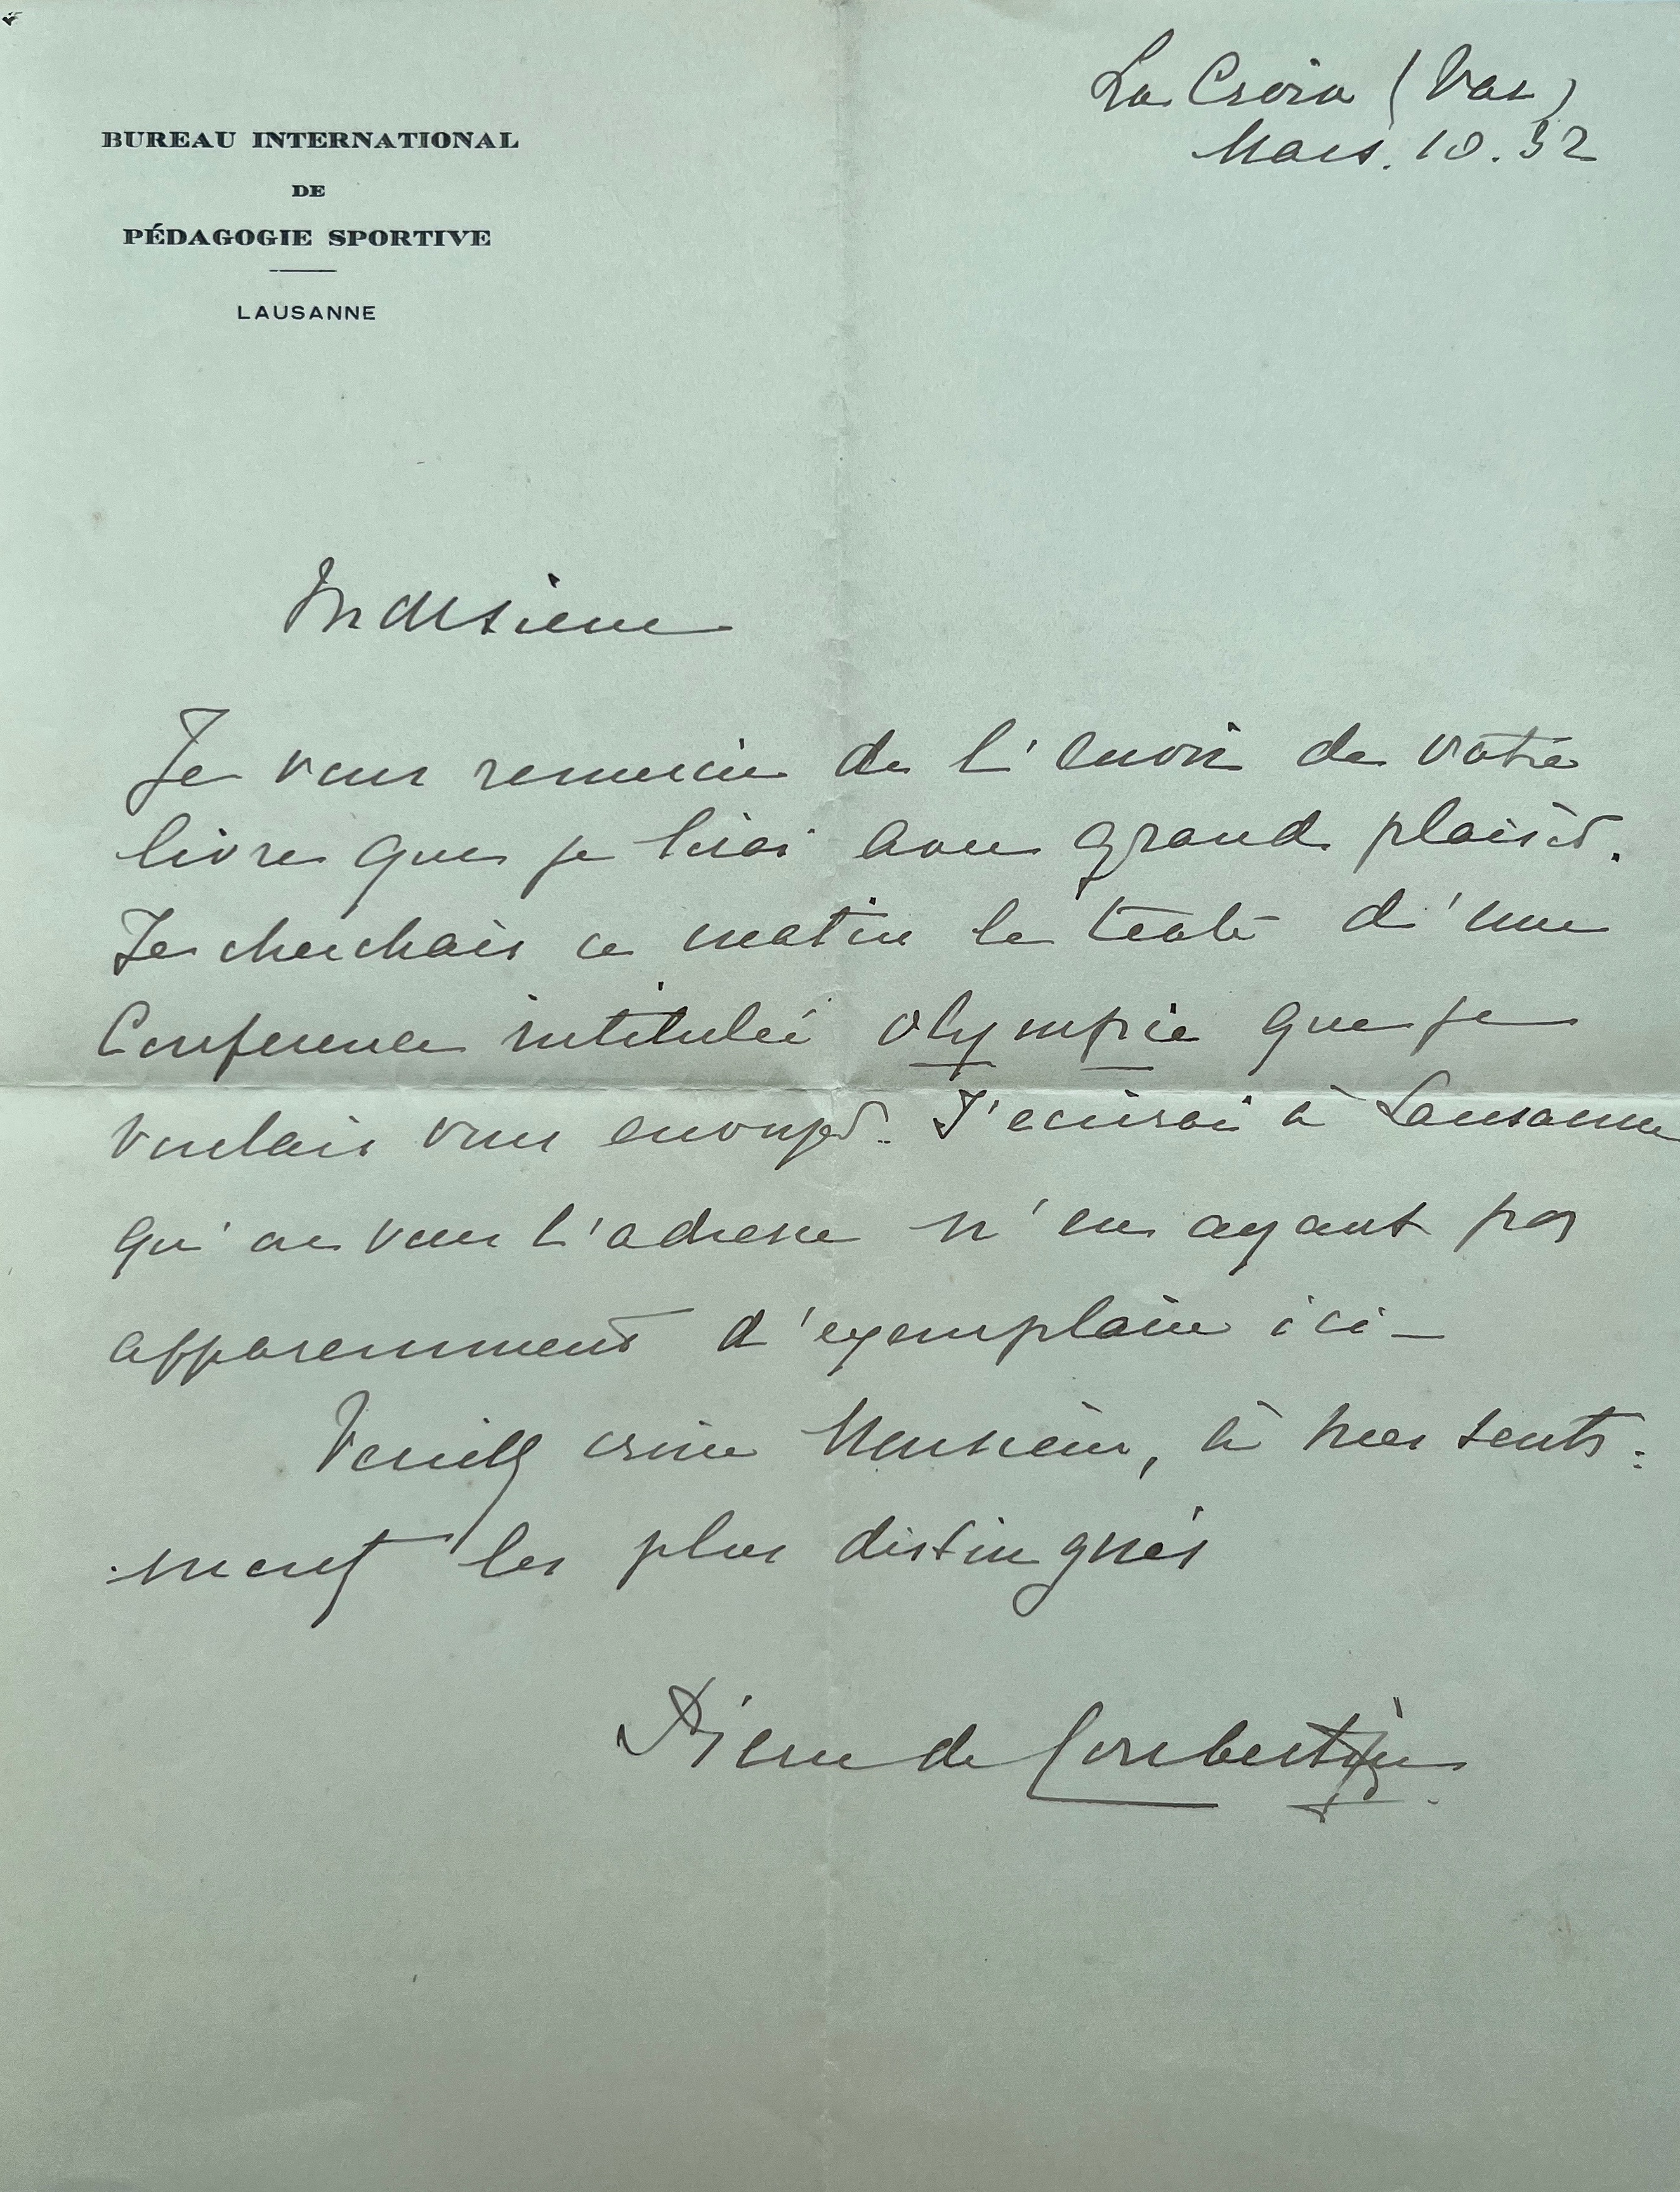 La Croix (Var)
Mars. 10. 32
BUREAU INTERNATIONAL
DE
PÉDAGOGIE SPORTIVE
LAUSANNE
Monsieur
Je vous remercie de l'envoi de votre
livre que je lirai avec grand plaisir.
Je cherchais ce matin le texte d'une
Conference intitulée Olympie que je
voulais vous envoyer. J'ecrirai à Lausanne
qu'on vous l'adresse n'en ayant pas
apparemment d'exemplaire ici _
Veuillez croire Monsieur, à mes senti:
.ments les plus distingués
Pierre de Coubertin